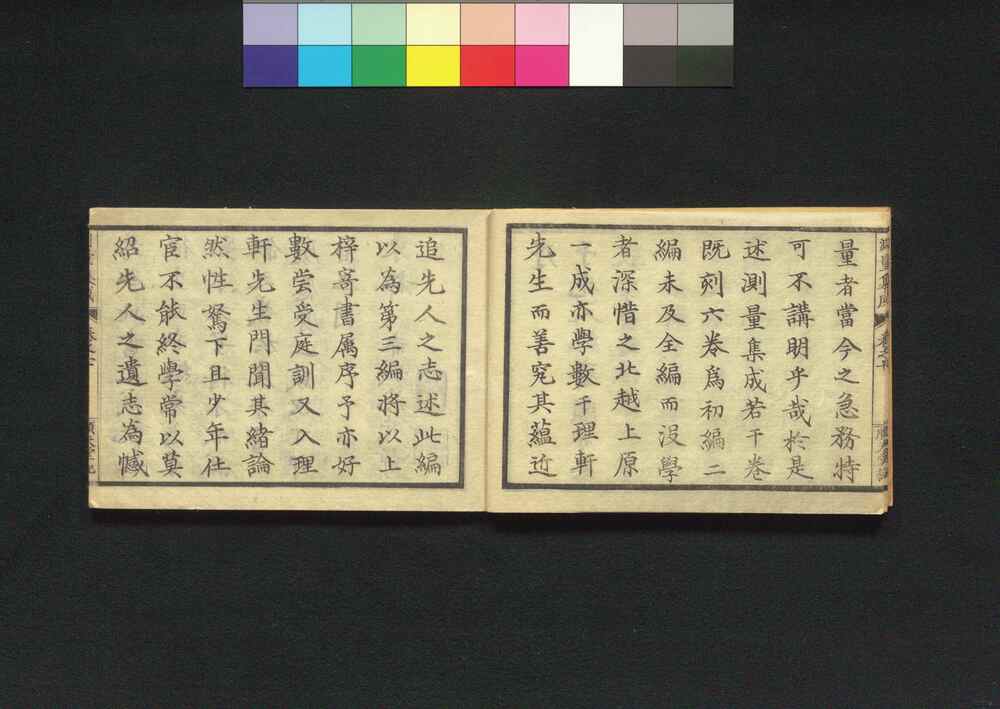 量者當今之急務特
可不講明乎哉於是
述測量集成若干卷
既刻六卷爲初編二
編未及全編而没學
者深惜之北越上原
一成亦學數于理軒
先生而善究其蘊近
追先人之志述此編
以為第三編将以上
梓寄書属序予亦好
數嘗受庭訓又入理
軒先生門聞其緒論
然性駑下且少年仕
宦不能終學常以莫
紹先人之遺志為憾